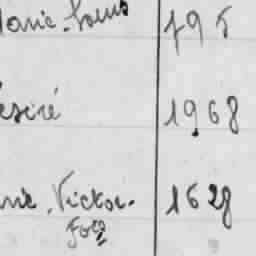 Marie-Louis 795
ésiré 1968
rie, Victor. 1628